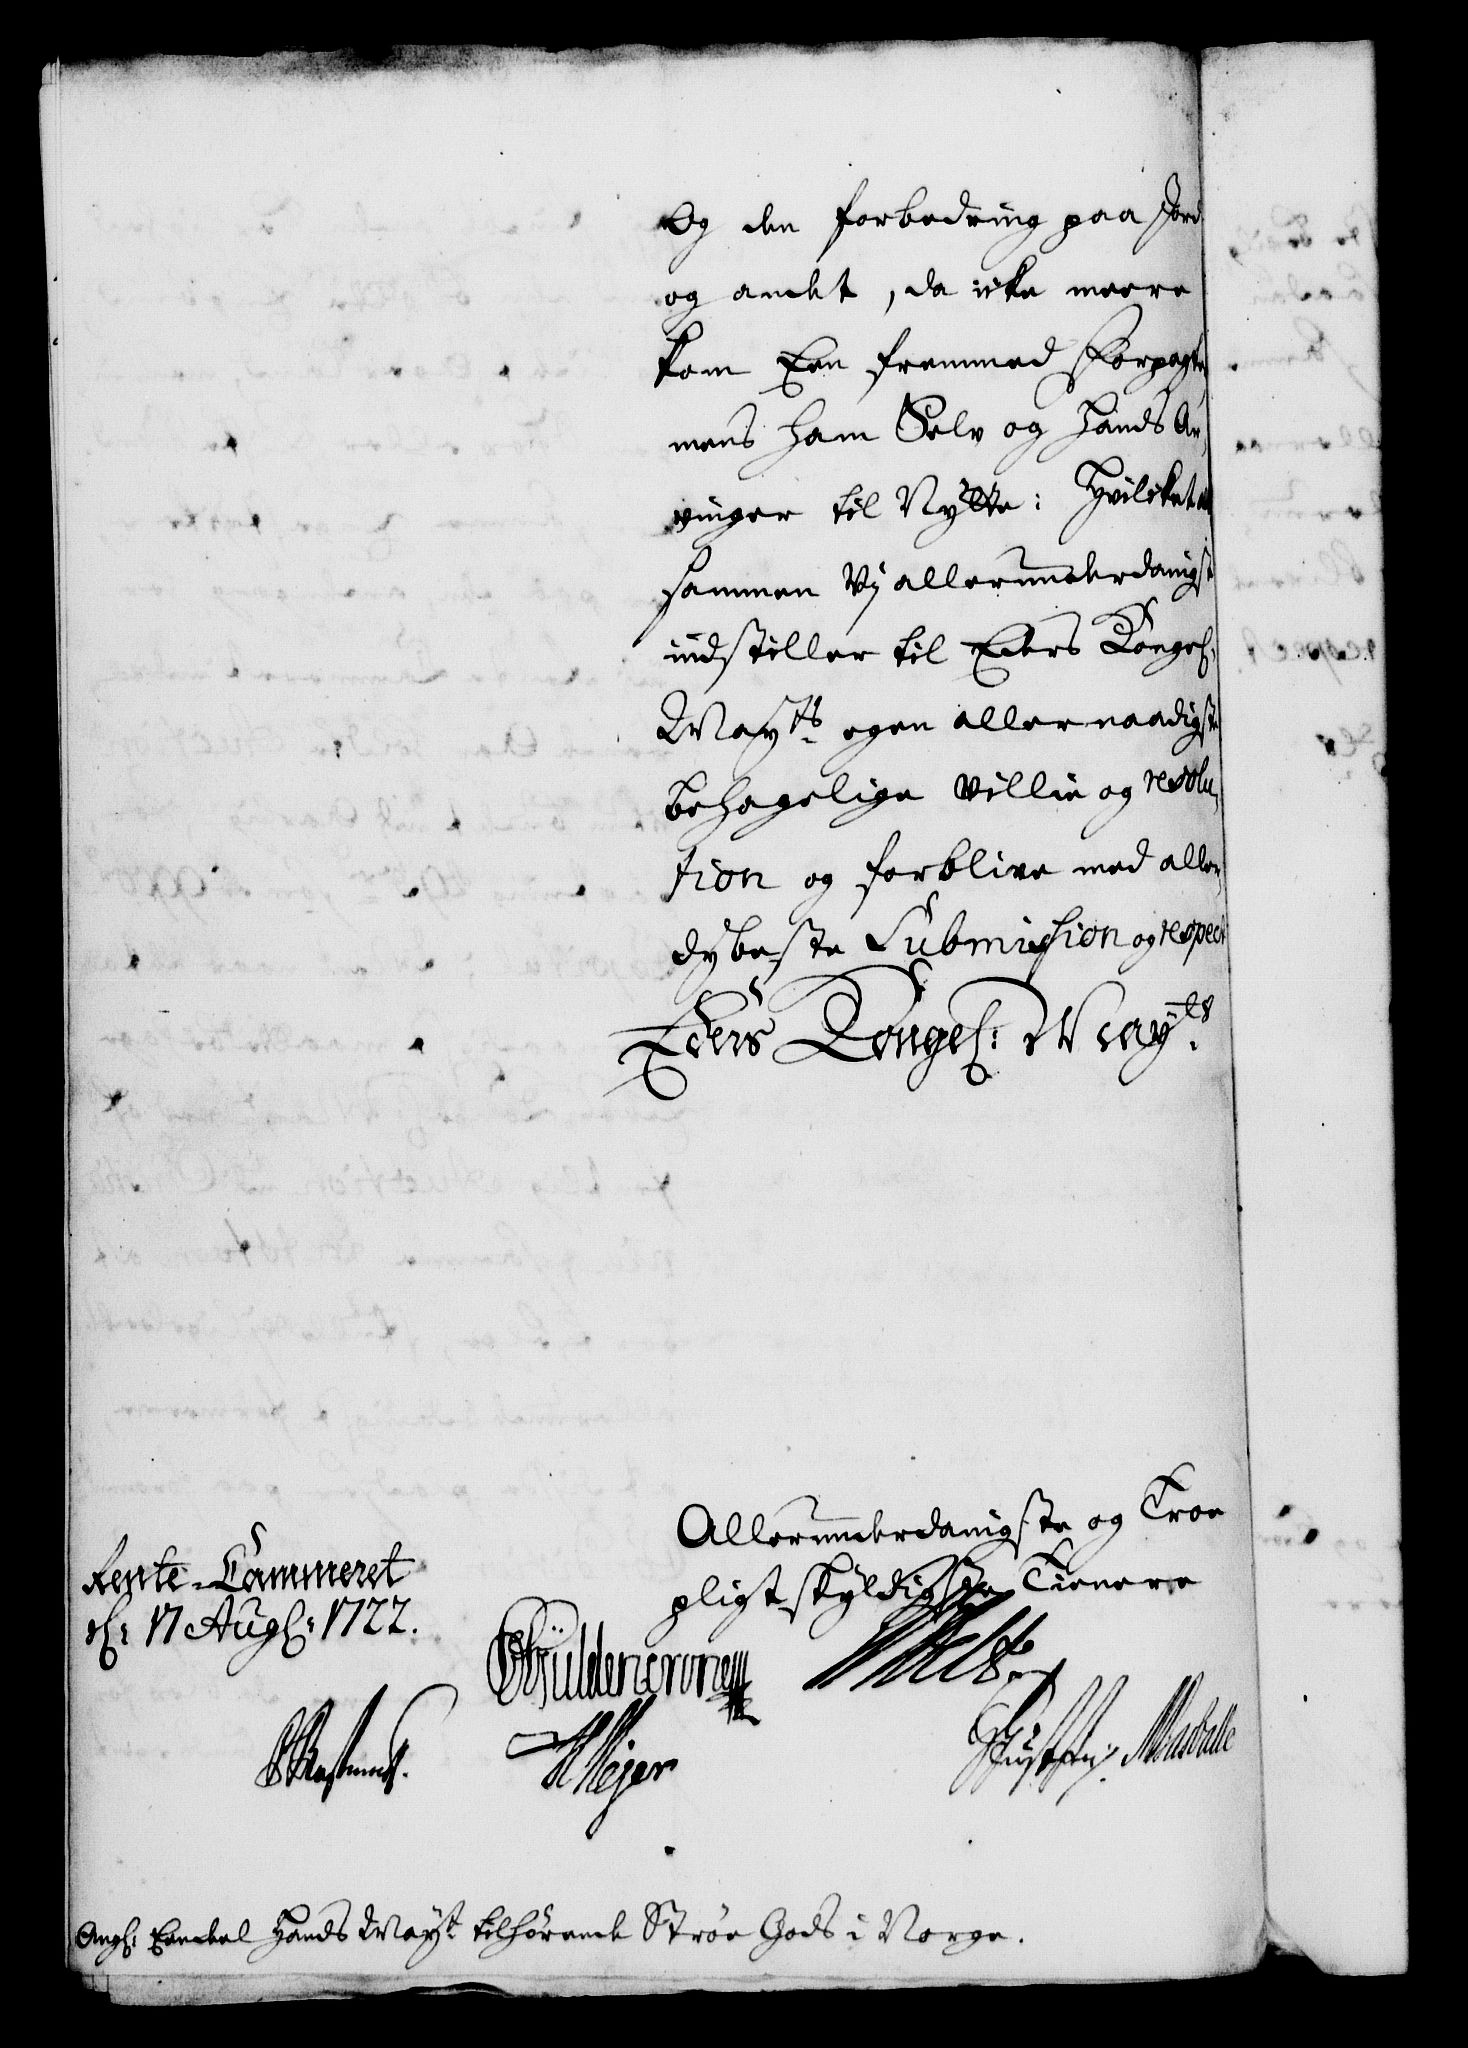 Og den forbedring paa Jord
og andet, da icke meere
kom Een fremmed Forpagter
mens ham Selv og Hands Ar,
vinger til Nytte: Hvilcket alt
sammen Vj allerunderdanigst
indstiller til Eders Kongel:
Mayts. egen allernaadigste
behagelige Villie og resolu,
tion og forblive med aller,
dybeste Submission og respect
Eders Kongel: Mayts.
Allerunderdanigste og Troe
pligtskyldigste Tienere
Rente-Cammeret
d: 17 Aug: 1722.
Güldencrone
Meyer
Angl: Eendeel Hands Mayt: tilhørende Strøe Gods i Norge.